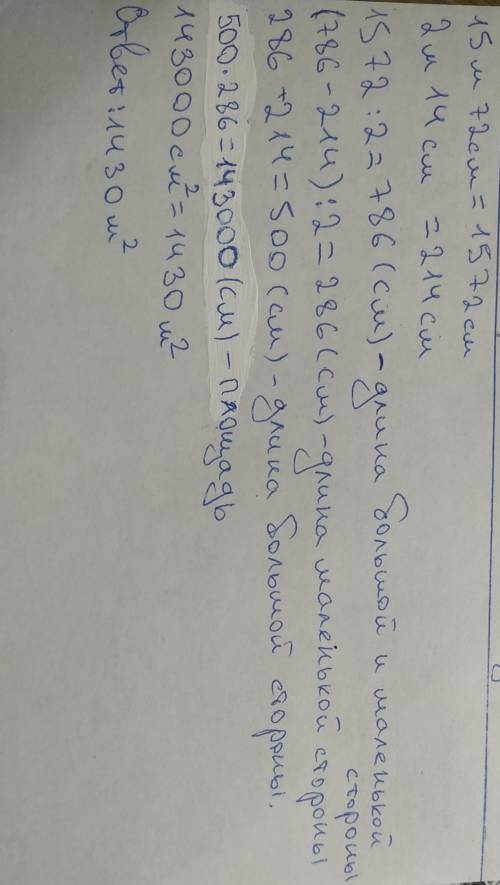 15 м 72см = 1572см
2м 14 см = 214см
1572 : 2 = 786 (см) - длина большой и маленькой
стороны
(786 - 214) : 2 = 286 (см) - длина маленькой стороны
286 + 214 = 500 (см) - длина большой стороны.
500 · 286 = 143000 (см) - площадь
143000 см² = 1430 м²
Ответ: 1430 м²